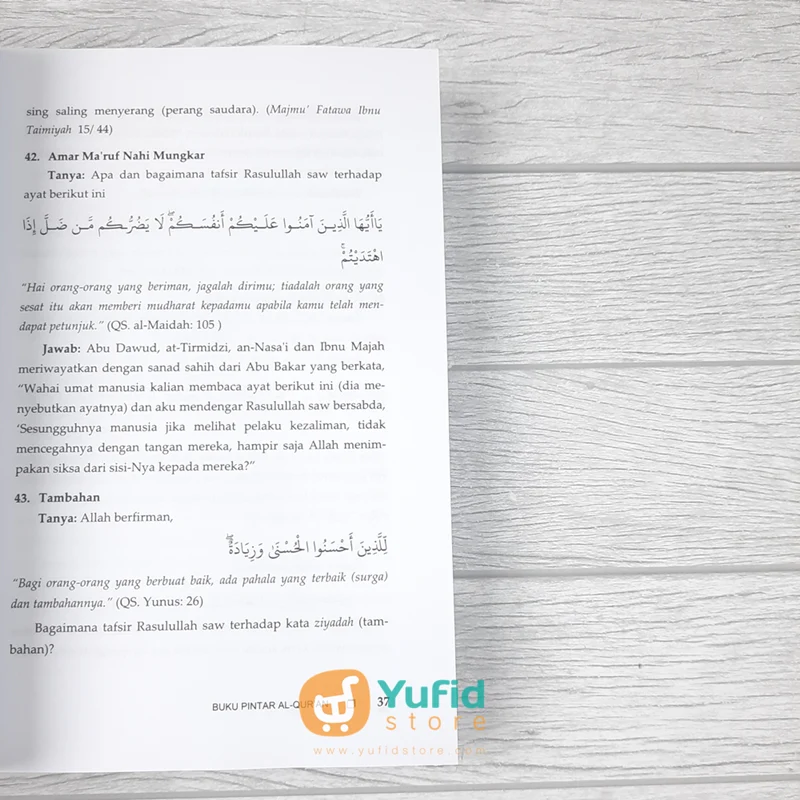 sing saling menyerang (perang saudara). (Majmu' Fatawa Ibnu
Taimiyah 15/ 44)
42. Amar Ma'ruf Nahi Mungkar
Tanya: Apa dan bagaimana tafsir Rasulullah saw terhadap
ayat berikut ini
يَاأَيُّهَا الَّذِينَ آمَنُوا عَلَيْكُمْ أَنفُسَكُمْ ۖ لَا يَضُرُّكُم مَّن ضَلَّ إِذَا
اهْتَدَيْتُمْ ۚ
"Hai orang-orang yang beriman, jagalah dirimu; tiadalah orang yang
sesat itu akan memberi mudharat kepadamu apabila kamu telah men-
dapat petunjuk." (QS. al-Maidah: 105 )
Jawab: Abu Dawud, at-Tirmidzi, an-Nasa'i dan Ibnu Majah
meriwayatkan dengan sanad sahih dari Abu Bakar yang berkata,
"Wahai umat manusia kalian membaca ayat berikut ini (dia me-
nyebutkan ayatnya) dan aku mendengar Rasulullah saw bersabda,
'Sesungguhnya manusia jika melihat pelaku kezaliman, tidak
mencegahnya dengan tangan mereka, hampir saja Allah menim-
pakan siksa dari sisi-Nya kepada mereka?"
43. Tambahan
Tanya: Allah berfirman,
لِّلَّذِينَ أَحْسَنُوا الْحُسْنَىٰ وَزِيَادَةٌ ۖ
"Bagi orang-orang yang berbuat baik, ada pahala yang terbaik (surga)
dan tambahannya." (QS. Yunus: 26)
Bagaimana tafsir Rasulullah saw terhadap kata ziyadah (tam-
bahan)?
BUKU PINTAR AL-QUR'AN 37
Yufid
store
www.yufidstore.com